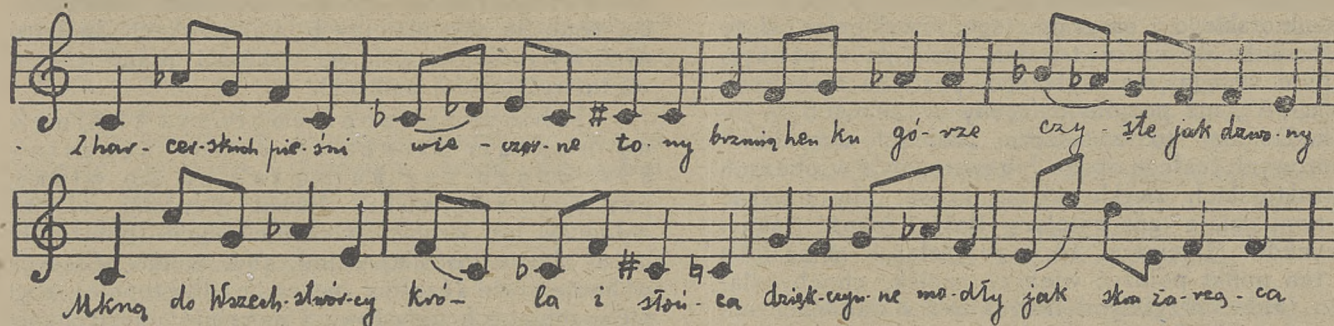 Z har-cer-skich pie-śni wie-czor-ne to-ny brzmią hen ku gó-rze czy-ste jak dzwo-ny
Mkną do Wszech-stwór-cy kró-la i słoń-ca dzięk-czyn-ne mo-dły jak skra ża-rzą-ca